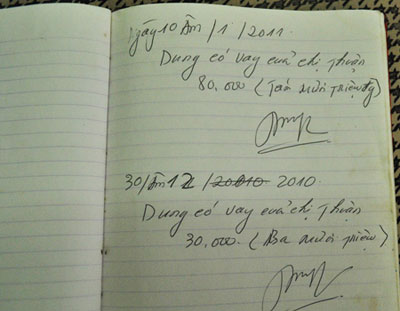 Ngày 10 Âm / 1 / 2011
Dung có vay của chị Thuận
80.000 (Tám mươi triệu đ)
30/Âm 12 / 20010 2010.
Dung có vay của chị Thuận
30.000. (Ba mươi triệu)